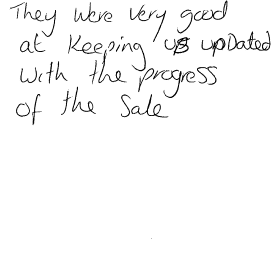 They were very good
at Keeping us upDated
with the progress
of the Sale